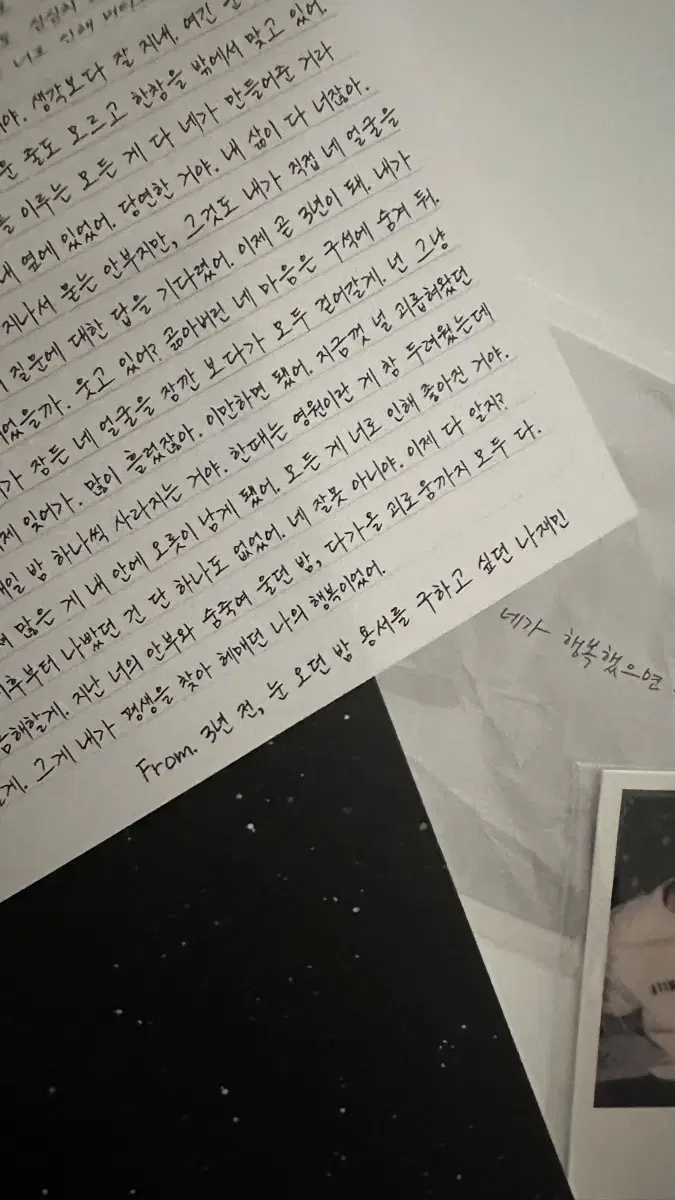 심심
너로 인해
야. 생각보다 잘 지내. 여긴
운 줄도 모르고 한창을 밖에서 맞고 있어.
를 이루는 모든 게 다 네가 만들어준 거라
내 옆에 있었어. 당연한 거야. 내 삶이 다 너잖아.
지나서 묻는 안부지만, 그것도 내가 직접 네 얼굴을
질문에 대한 답을 기다렸어. 이제 곧 3년이 돼. 내가
었을까. 웃고 있어? 곪아버린 네 마음은 구석에 숨겨 둬.
가 잠든 네 얼굴을 잠깐 보다가 모두 걷어갈게. 넌 그냥
제 잊어가. 많이 흘렀잖아. 이만하면 됐어. 지금껏 널 괴롭혀왔던
매일 밤 하나씩 사라지는 거야. 한때는 영원이란 게 참 두려웠는데
많은 게 내 안에 오롯이 남게 됐어. 모든 게 너로 인해 좋아진 거야.
이후부터 나빴던 건 단 하나도 없었어. 네 잘못 아니야. 이제 다 알지?
해할게. 지난 너의 안부와 숨죽여 울던 밤, 다가올 괴로움까지 모두 다.
게. 그게 내가 평생을 찾아 헤매던 나의 행복이었어.
From. 3년 전, 눈 오던 밤 용서를 구하고 싶던 나재민
네가 행복했으면